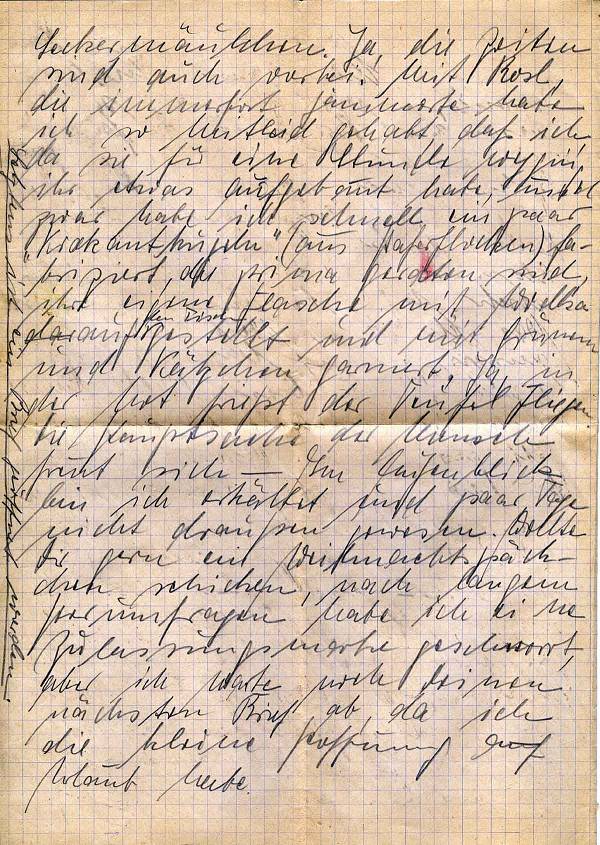 Leckermäulchen. Ja, die Zeiten
sind auch vorbei. Mit Rosl,
die immerfort jammerte habe
ich so Mitleid gehabt, daß ich,
da sie für eine Stunde wegging,
ihr etwas aufgebaut habe, und
zwar habe ich schnell ein paar
"Krokantkugeln" (aus Haferflocken) fa-
briziert, die prima geraten sind,
ihre eigene Flasche mit
daraufgestellt und mit Grünem
und Kätzchen garniert. Ja, in
der Not frißt der Teufel Fliegen.
Die Hauptsache der Mensch
freut sich — Im Augenblick
bin ich erkältet und paar Tage
nicht draußen gewesen. Wollte
Dir gern ein Weihnachtspäck-
chen schicken, nach langem
herumfragen habe ich eine
Zulassungsmarke geschnorrt,
aber ich warte noch deinen
nächsten Brief ab, da ich
die kleine Hoffnung auf
Urlaub habe.
ein Brief